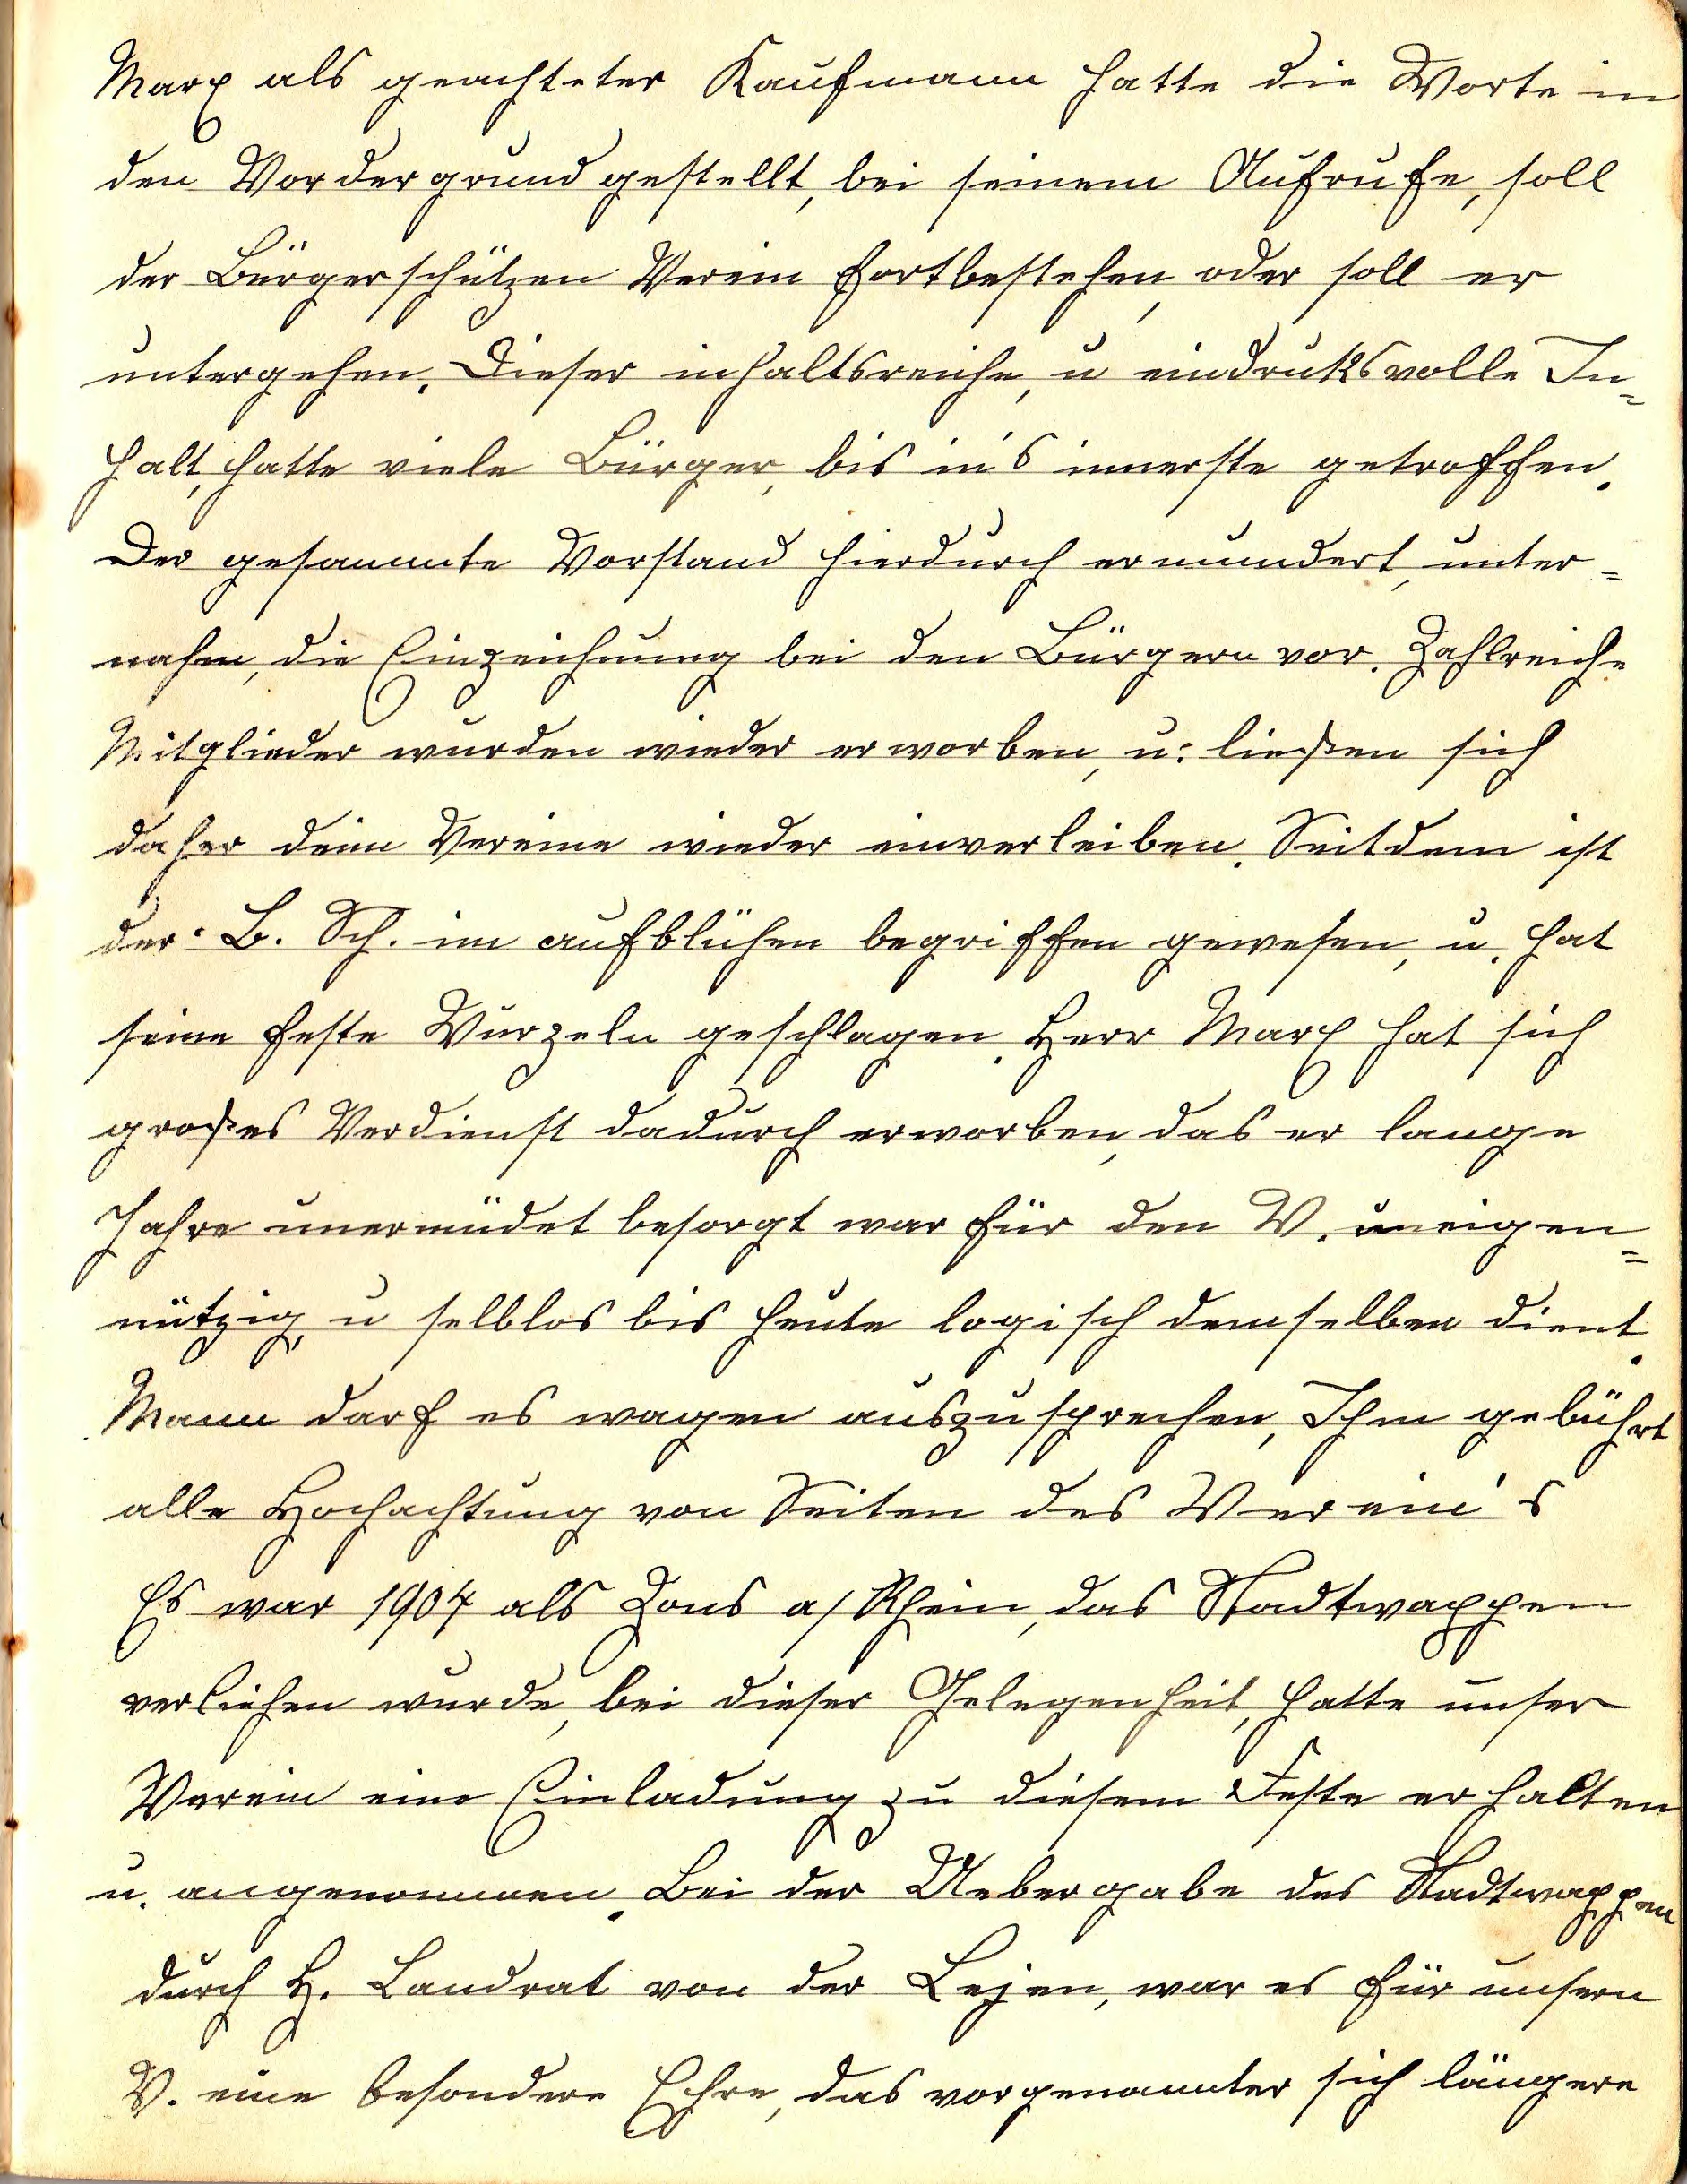 Marx als geachteter Kaufmann hatte die Worte in
den Vordergrund gestellt, bei seinem Aufrufe, soll
der Bürgerschützen Verein fortbestehen, oder soll er
untergehen. Dieser inhaltsreiche, u eindruksvolle In=
halt, hatte viele Bürger, bis in's innerste getroffen.
Der gesammte Vorstand hierdurch ermundert, unter=
nahm, die Einzeichnung bei den Bürgern vor. Zahlreiche
Mitglieder wurden wieder erworben, u: ließen sich
daher dem Vereine wieder einverleiben. Seitdem ist
der B. Sch. im aufblühen begriffen gewesen, u. hat
seine feste Wurzeln geschlagen. Herr Marx hat sich
großes Verdienst dadurch erworben, das er lange
Jahre unermüdet besorgt war für den V. uneigen=
nützig, u selblos bis heute logisch demselben dient.
Mann darf es wagen auszusprechen, Ihm gebührt
alle Hochachtung von Seiten des Verein's
Es war 1904 als Zons a/Rhein, das Stadtwappen
verliehen wurde, bei dieser Gelegenheit, hatte unser
Verein eine Einladung zu diesem Feste erhalten
u. angenommen. Bei der Uebergabe des Stadtwappen
durch H. Landrat von der Lejen, war es für unsern
V. eine besondere Ehre, das vorgenannter sich längere